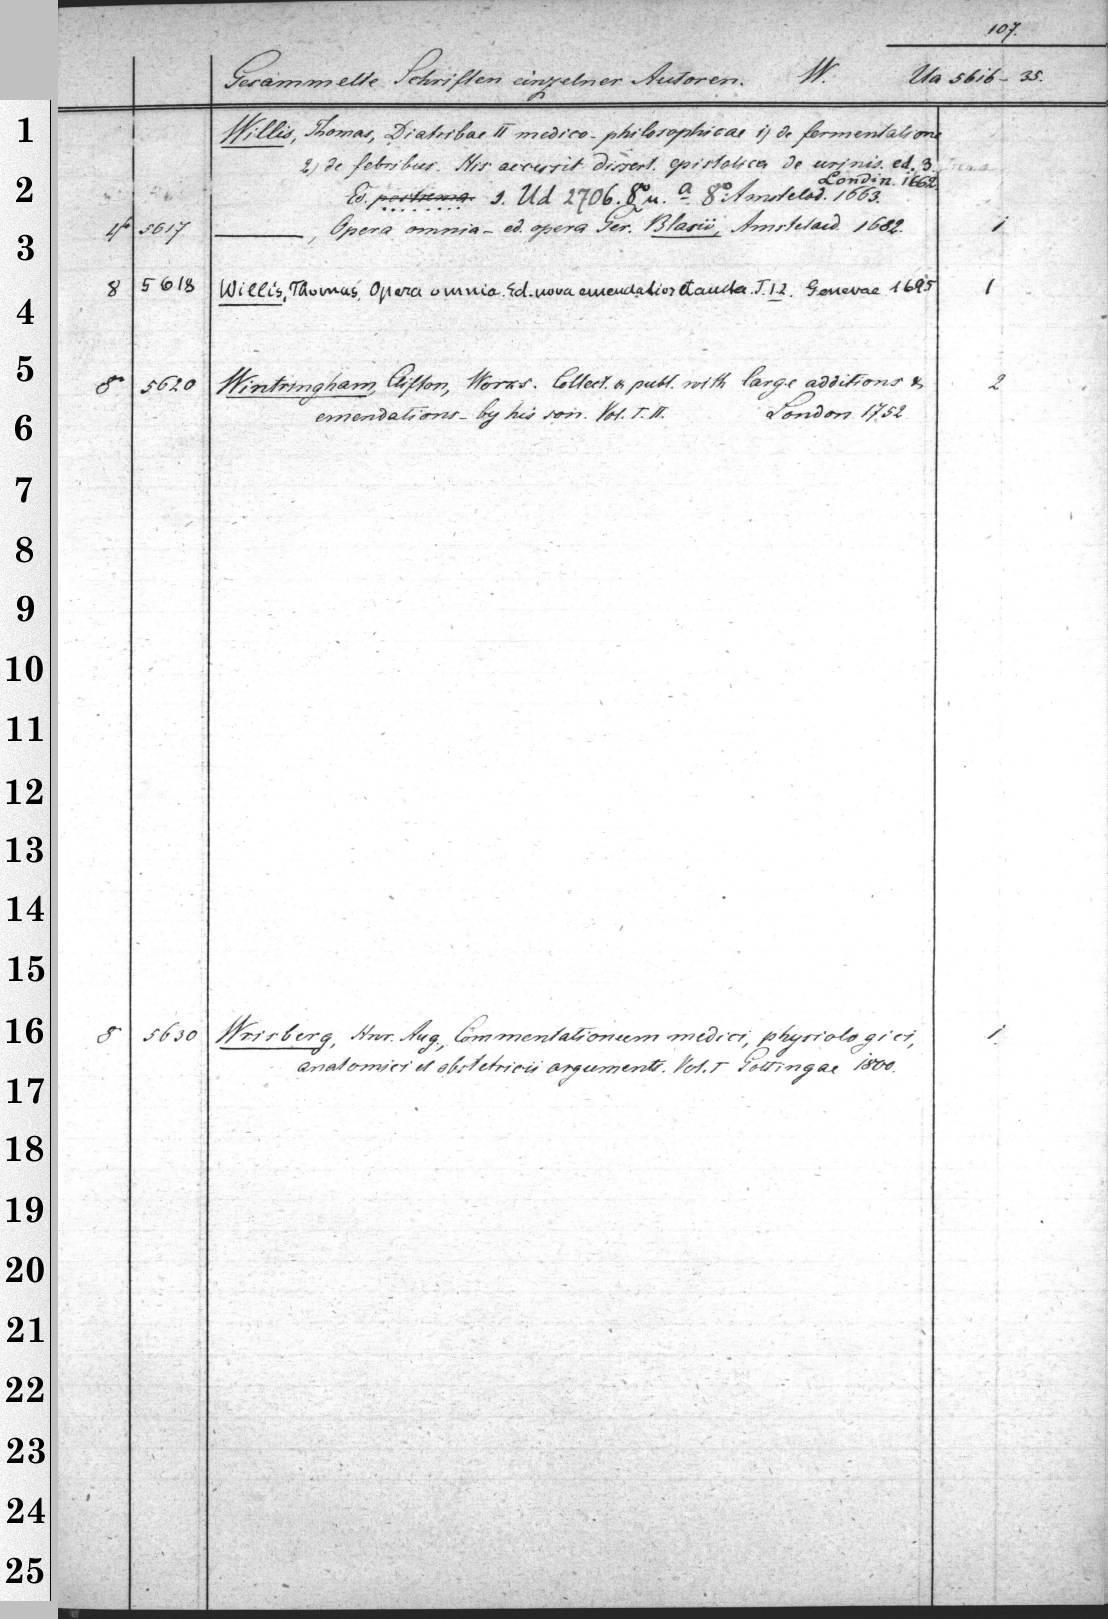 107.
Gesammelte Schriften einzelner Autoren. W. Ua 5616-35.
1 Willis, Thomas, Diatribae II medico-philosophicae 1) de fermentatione
2) de febribus. His accessit dissert. epistolica de urinis. ed. 3.
Londin. 1662
2 Ed. postrema. s. Ud 2706. 8° u. a 8° Amstelod. 1663.
4° 5617 ———, Opera omnia - ed. opera Ger. Blasii, Amstelaed. 1682. 1
3
8 5618 Willis, Thomas, Opera omnia. Ed. nova emendatior et aucta. T. 1.2. Genevae 1695 1
4
5
8° 5620 Wintringham, Clifton, Works. Collect. & publ. with large additions & 2
6 emendations - by his son. Vol. I. II. London 1752.
7
8
9
10
11
12
13
14
15
16 8 5630 Wrisberg, Hnr. Aug., Commentationum medici, physiologici, 1.
anatomici et obstetricii argumenti. Vol. I Gottingae 1800.
17
18
19
20
21
22
23
24
25